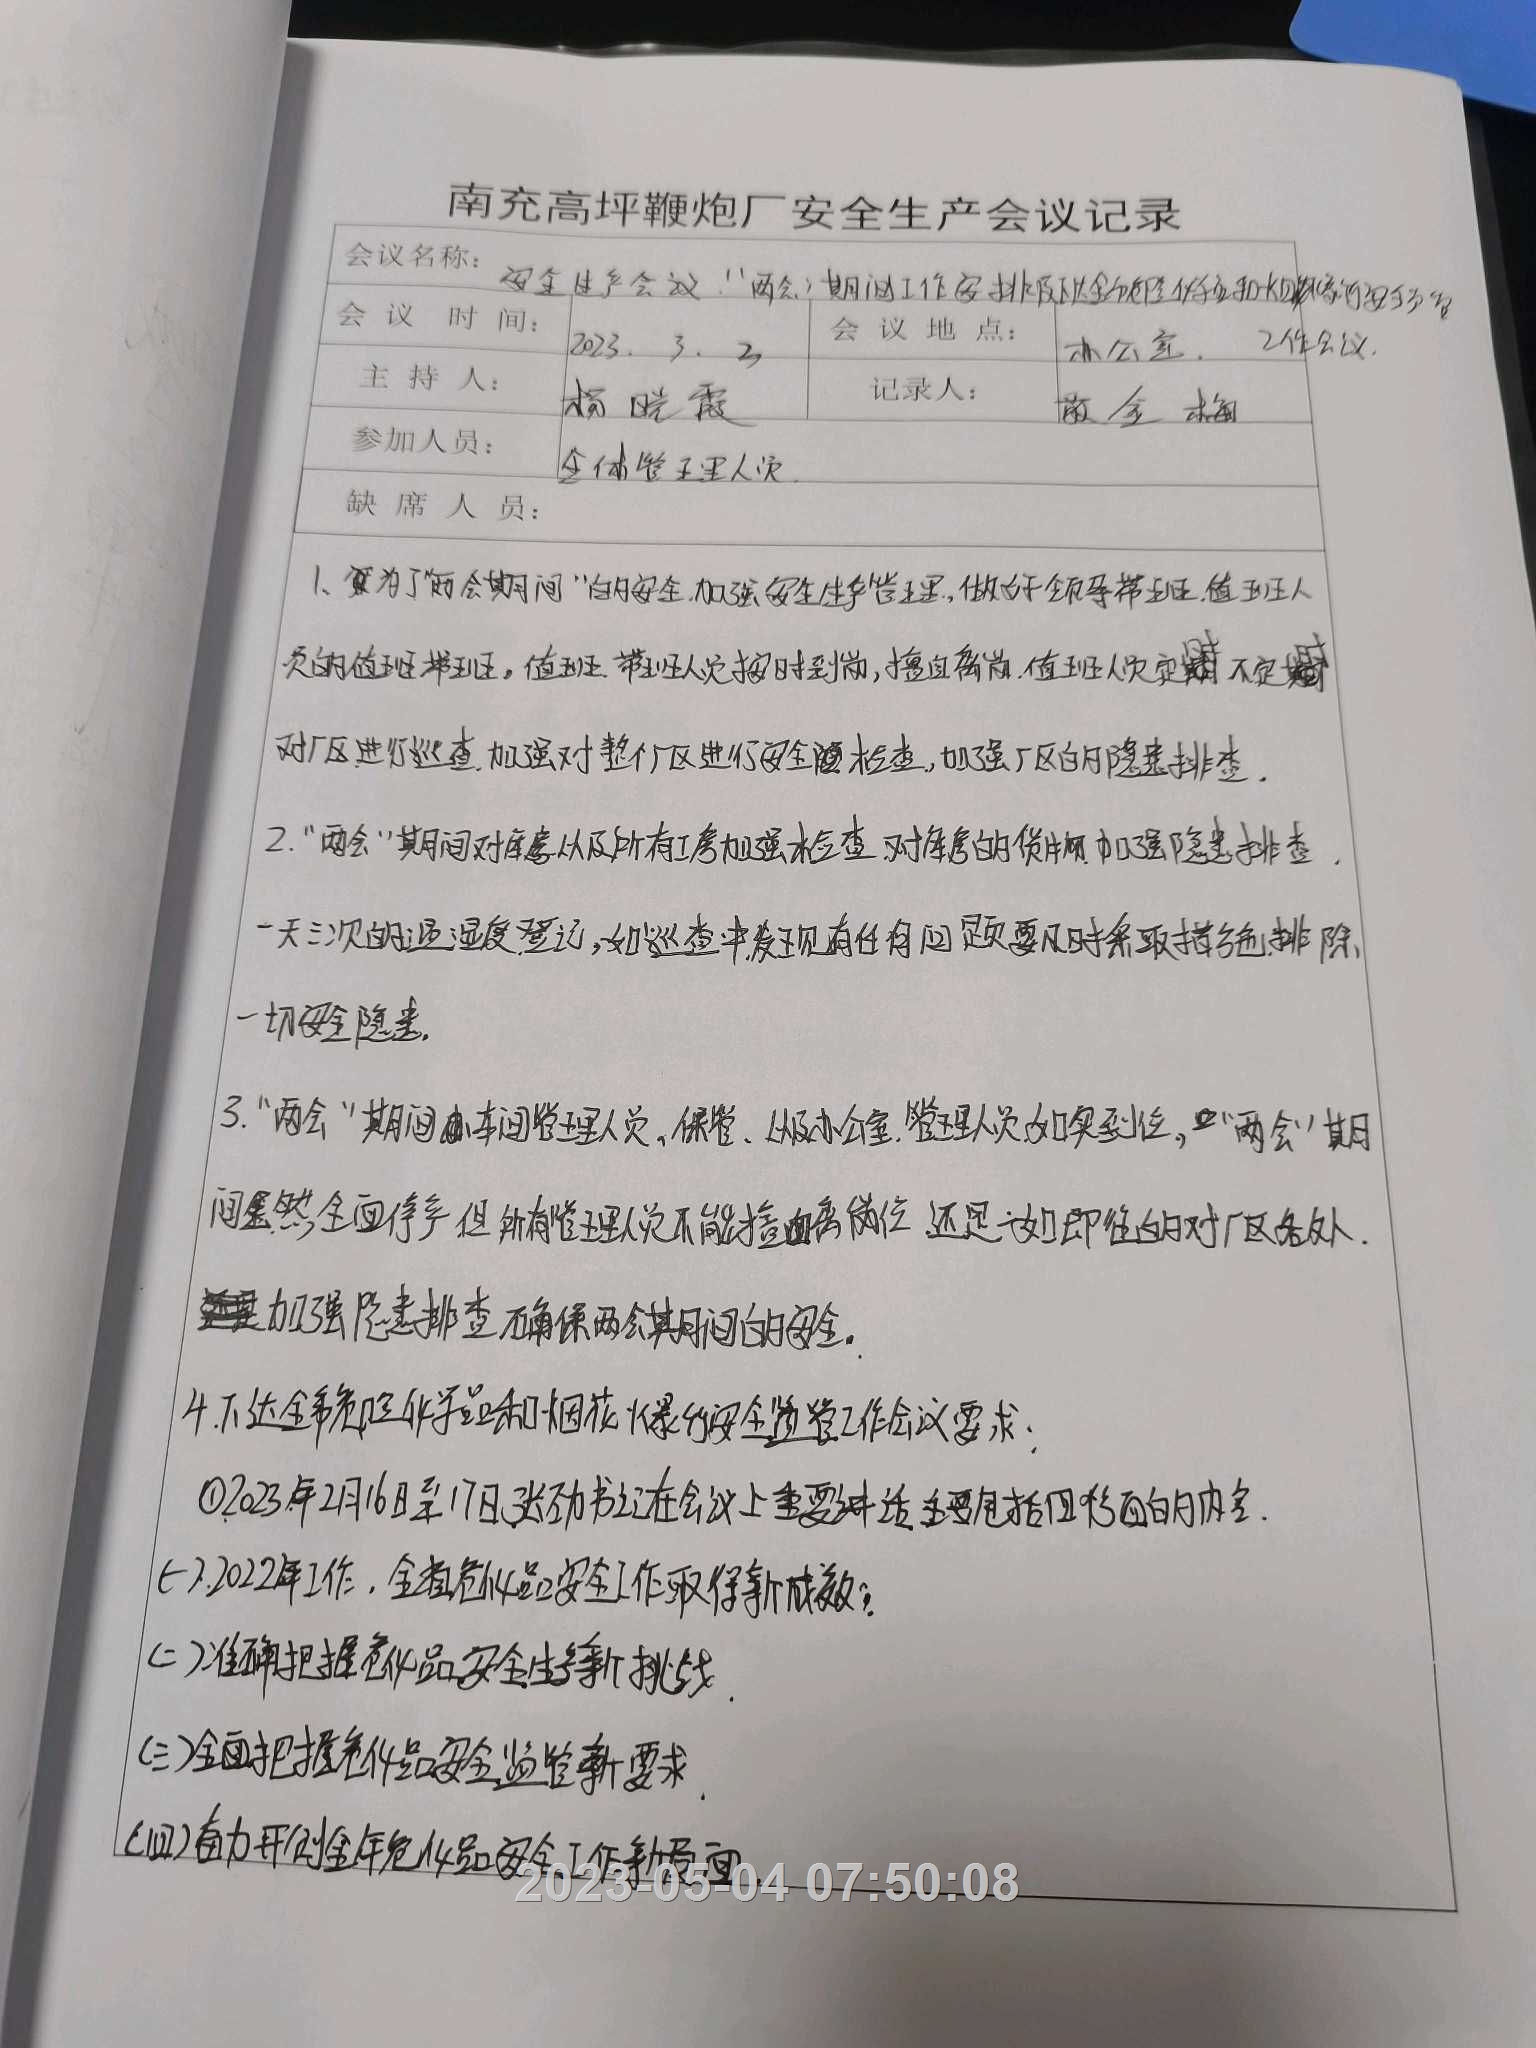 南充高坪鞭炮厂安全生产会议记录
会议名称： 安全生产会议."两会"期间工作安排及下达全市危险化学品和烟花爆竹安全监管
工作会议.
会议时间： 2023.3.2 会议地点： 办公室.
主持人： 杨晓霞 记录人： 金梅
参加人员： 全体管理人员.
缺席人员：
1、为了"两会期间"的安全.加强安全生产管理,做好领导带班.值班人
员的值班带班。值班.带班人员按时到岗,擅自离岗.值班人员定时不定时
对厂区进行巡查.加强对整个厂区进行安全检查,加强厂区的隐患排查.
2."两会"期间对库房以及所有工房加强检查.对库房的货物加强隐患排查.
一天三次的温湿度登记,如巡查中发现有任何问题要及时采取措施排除
一切安全隐患.
3."两会"期间车间管理人员,保管、以及办公室.管理人员如实到位,"两会"期
间虽然全面停产但所有管理人员不能擅自离岗位.还是一如即往的对厂区各处
加强隐患排查确保两会期间的安全。
4.下达全市危险化学品和烟花爆竹安全监管工作会议要求:
①2023年2月16日至17日,张劲书记在会议上重要讲话主要包括四方面的内容.
(一).2022年工作.全省危化品安全工作取得新成效;
(二)准确把握危化品安全生产新挑战.
(三)全面把握危化品安全监管新要求.
(四)奋力开创全年危化品安全工作新局面.
2023-05-04 07:50:08